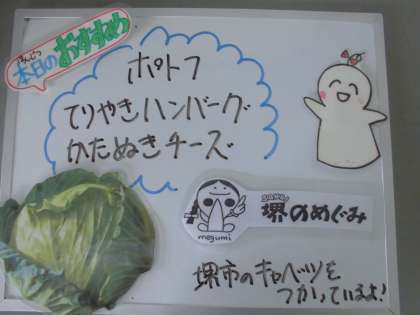 ほんじつ
本日のおすすめ
ポトフ
てりやきハンバーグ
かたぬきチーズ
堺のめぐみ
megumi
堺市のキャベツを
つかっているよ！